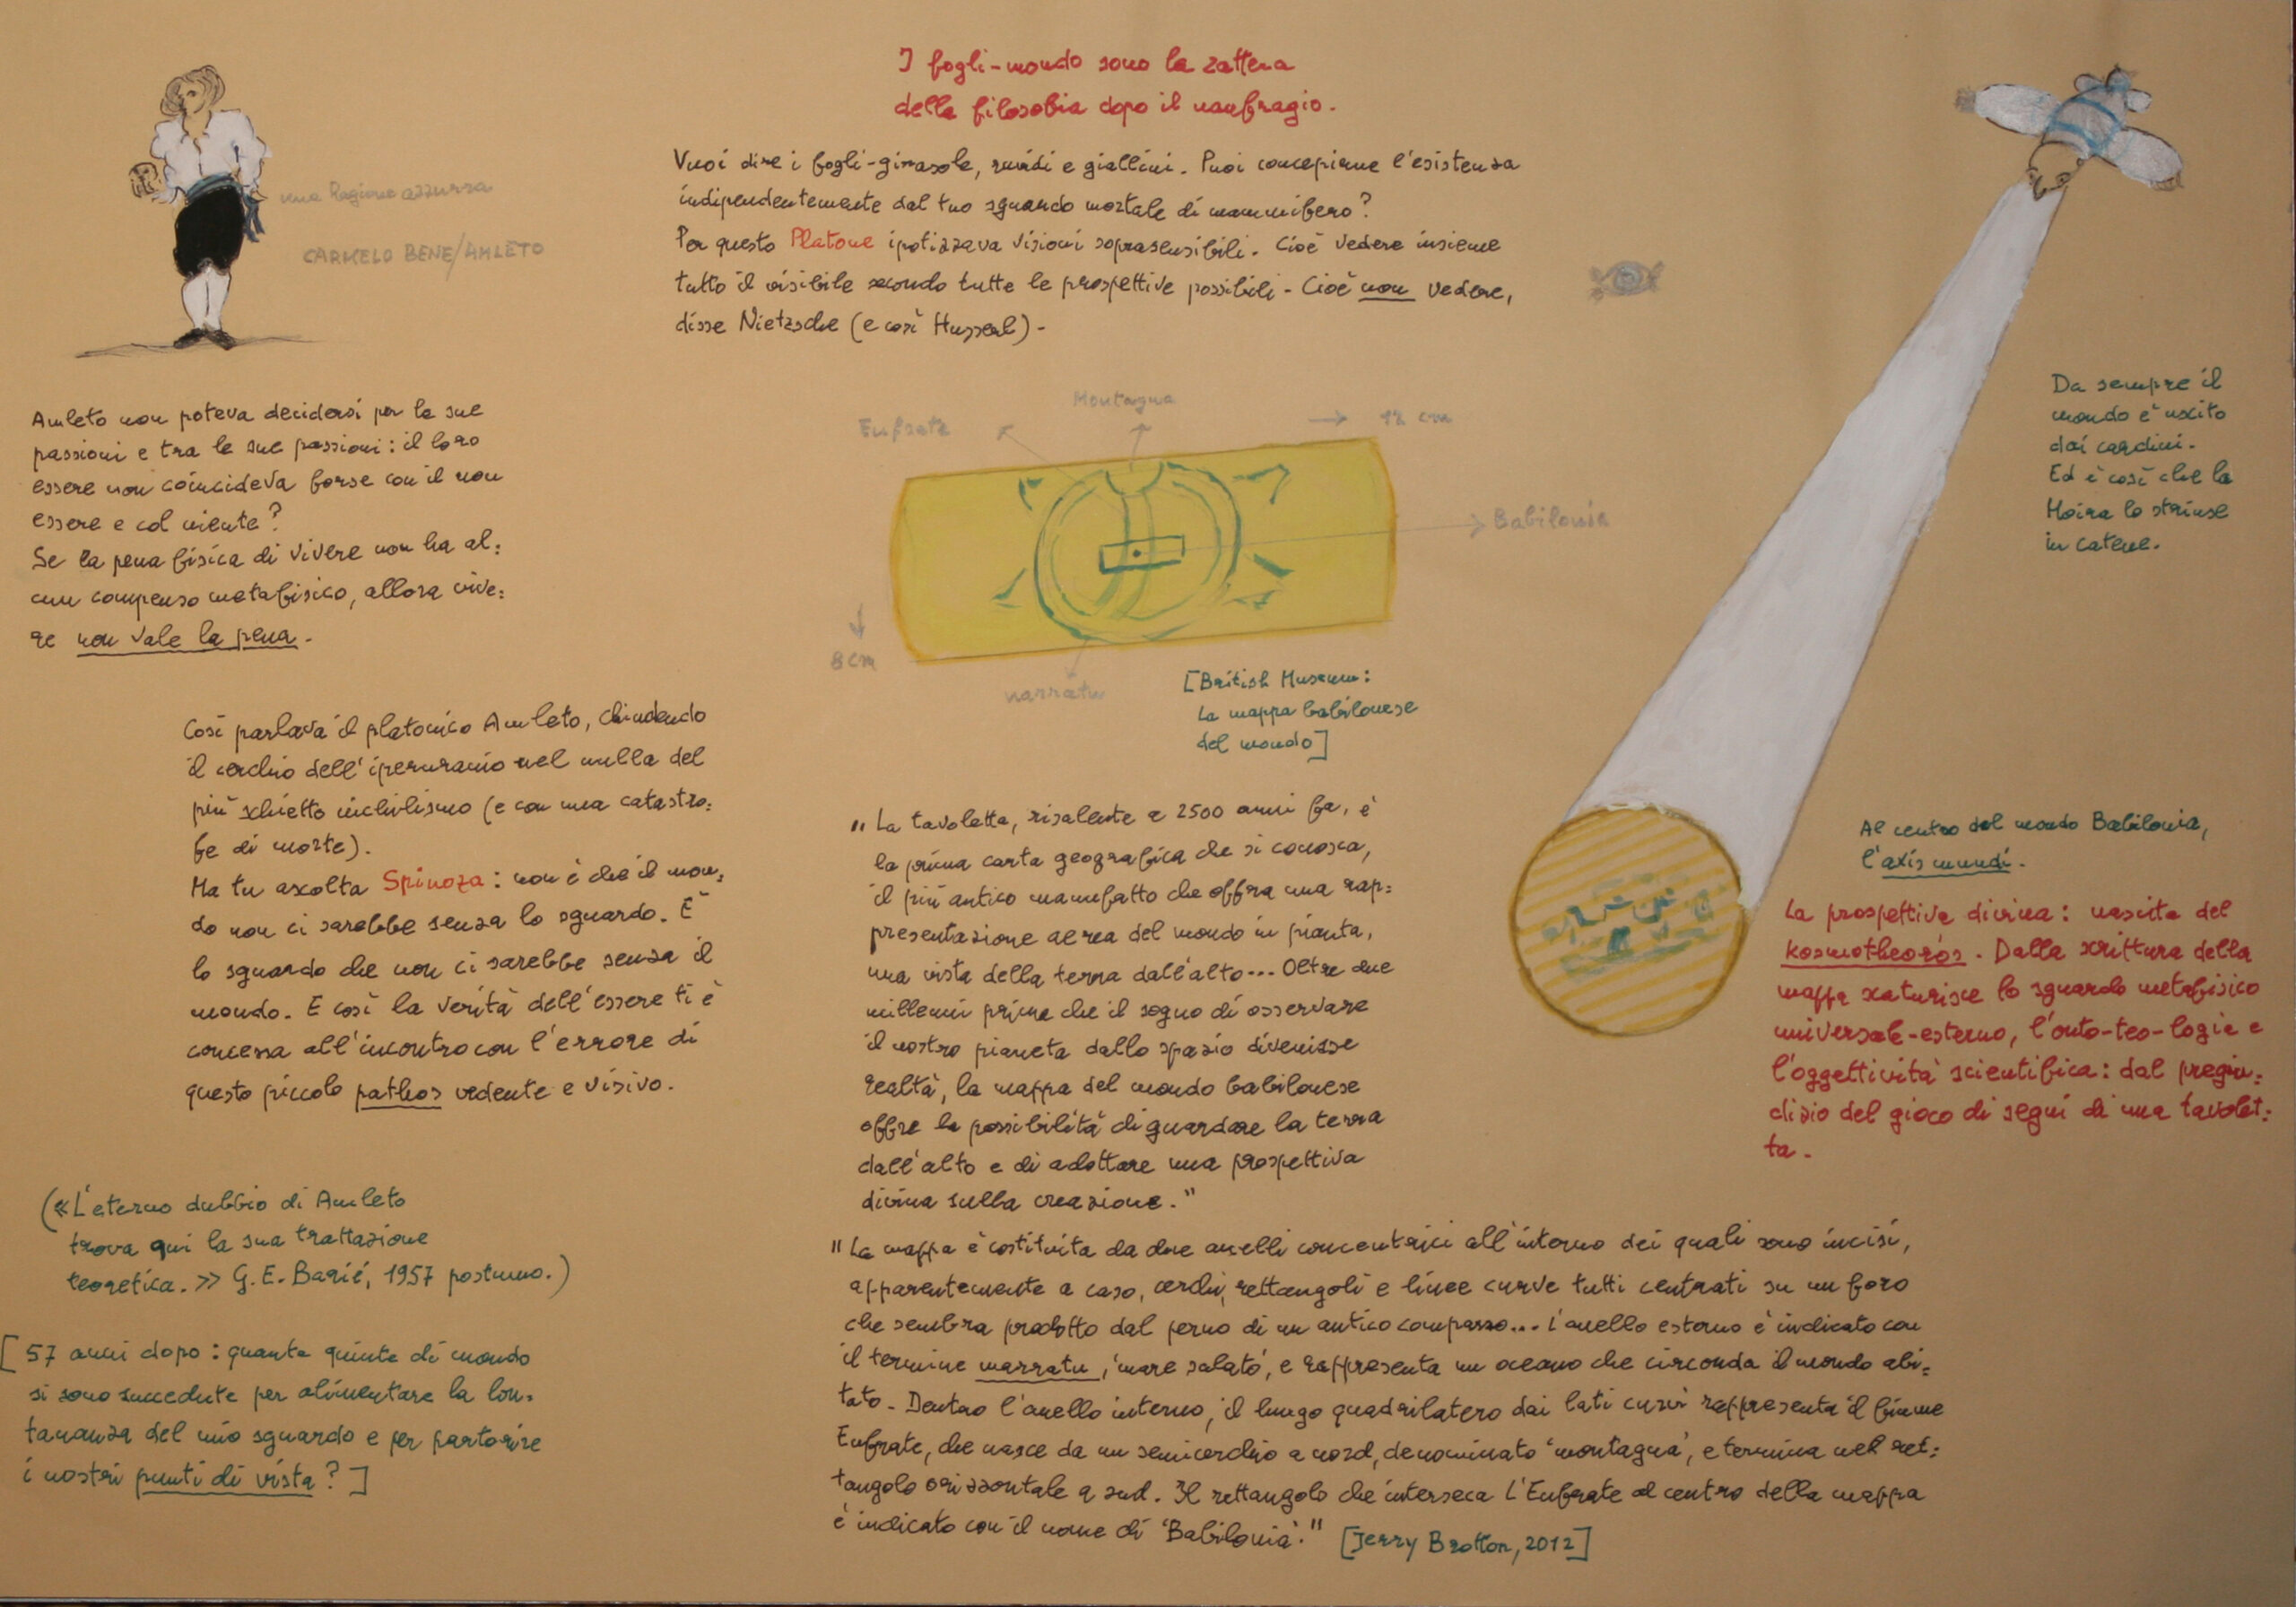 I fogli-mondo sono la zattera
della filosofia dopo il naufragio.
Vuoi dire i fogli-girasole, ruvidi e giallini. Puoi concepirne l'esistenza
indipendentemente dal tuo sguardo mortale di mammifero?
Per questo Platone ipotizzava visioni soprasensibili. Cioè vedere insieme
tutto il visibile secondo tutte le prospettive possibili. Cioè non vedere,
disse Nietzsche (e così Husserl).
una Ragione azzurra
CARMELO BENE/AMLETO
Amleto non poteva decidersi per le sue
passioni e tra le sue passioni: il loro
essere non coincideva forse con il non
essere e col niente?
Se la pena fisica di vivere non ha al:
cun compenso metafisico, allora vive:
re non vale la pena.
Così parlava il platonico Amleto, chiudendo
il cerchio dell'iperuranio nel nulla del
più schietto nichilismo (e con una catastro:
fe di morte).
Ma tu ascolta Spinoza: non è che il mon:
do non ci sarebbe senza lo sguardo. È
lo sguardo che non ci sarebbe senza il
mondo. E così la verità dell'essere ti è
concessa all'incontro con l'errore di
questo piccolo pathos vedente e visivo.
(«L'eterno dubbio di Amleto
trova qui la sua trattazione
teoretica.» G.E. Bariè, 1957 postumo.)
[57 anni dopo: quante quinte di mondo
si sono succedute per alimentare la lon:
tananza del mio sguardo e per partorire
i nostri punti di vista?]
Eufrate
Montagna
12 cm
Babilonia
8 cm
narratu
[British Museum:
La mappa babilonese
del mondo]
"La tavoletta, risalente a 2500 anni fa, è
la prima carta geografica che si conosca,
il più antico manufatto che offra una rap:
presentazione aerea del mondo in pianta,
una vista della terra dall'alto... Oltre due
millenni prima che il sogno di osservare
il nostro pianeta dallo spazio divenisse
realtà, la mappa del mondo babilonese
offre la possibilità di guardare la terra
dall'alto e di adottare una prospettiva
divina sulla creazione."
"La mappa è costituita da due anelli concentrici all'interno dei quali sono incisi,
apparentemente a caso, cerchi, rettangoli e linee curve tutti centrati su un foro
che sembra prodotto dal perno di un antico compasso... L'anello esterno è indicato con
il termine marratu, 'mare salato', e rappresenta un oceano che circonda il mondo abi:
tato. Dentro l'anello interno, il lungo quadrilatero dai lati curvi rappresenta il fiume
Eufrate, che nasce da un semicerchio a nord, denominato 'montagna', e termina nel ret:
tangolo orizzontale a sud. Il rettangolo che interseca L'Eufrate al centro della mappa
è indicato con il nome di 'Babilonia'." [Jerry Brotton, 2012]
Da sempre il
mondo è uscito
dai cardini.
Ed è così che la
Moira lo strinse
in catene.
Al centro del mondo Babilonia,
l'axis mundi.
La prospettiva divina: nascita del
kosmotheoròs. Dalla scrittura della
mappa scaturisce lo sguardo metafisico
universale-esterno, l'onto-teo-logia e
l'oggettività scientifica: dal pregiu:
dizio del gioco di segni di una tavolet:
ta.